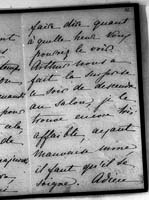 faire dire quant
à quelle heure vous
pourrez le voir
Arthur nous a
fait la surprise
ce soir de descendre
au salon, je le
trouve encore bien
affaibli ayant
mauvaise mine
il faut qu'il se
soigne. Adieu